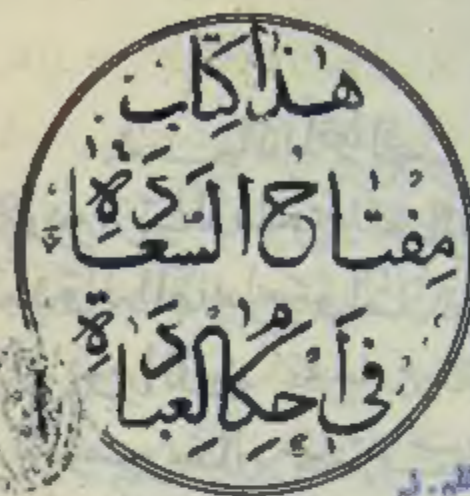 هذا كِتَاب
مِفتَاح السَّعَادَةِ
فى أَحكامِ العِبَادَةِ